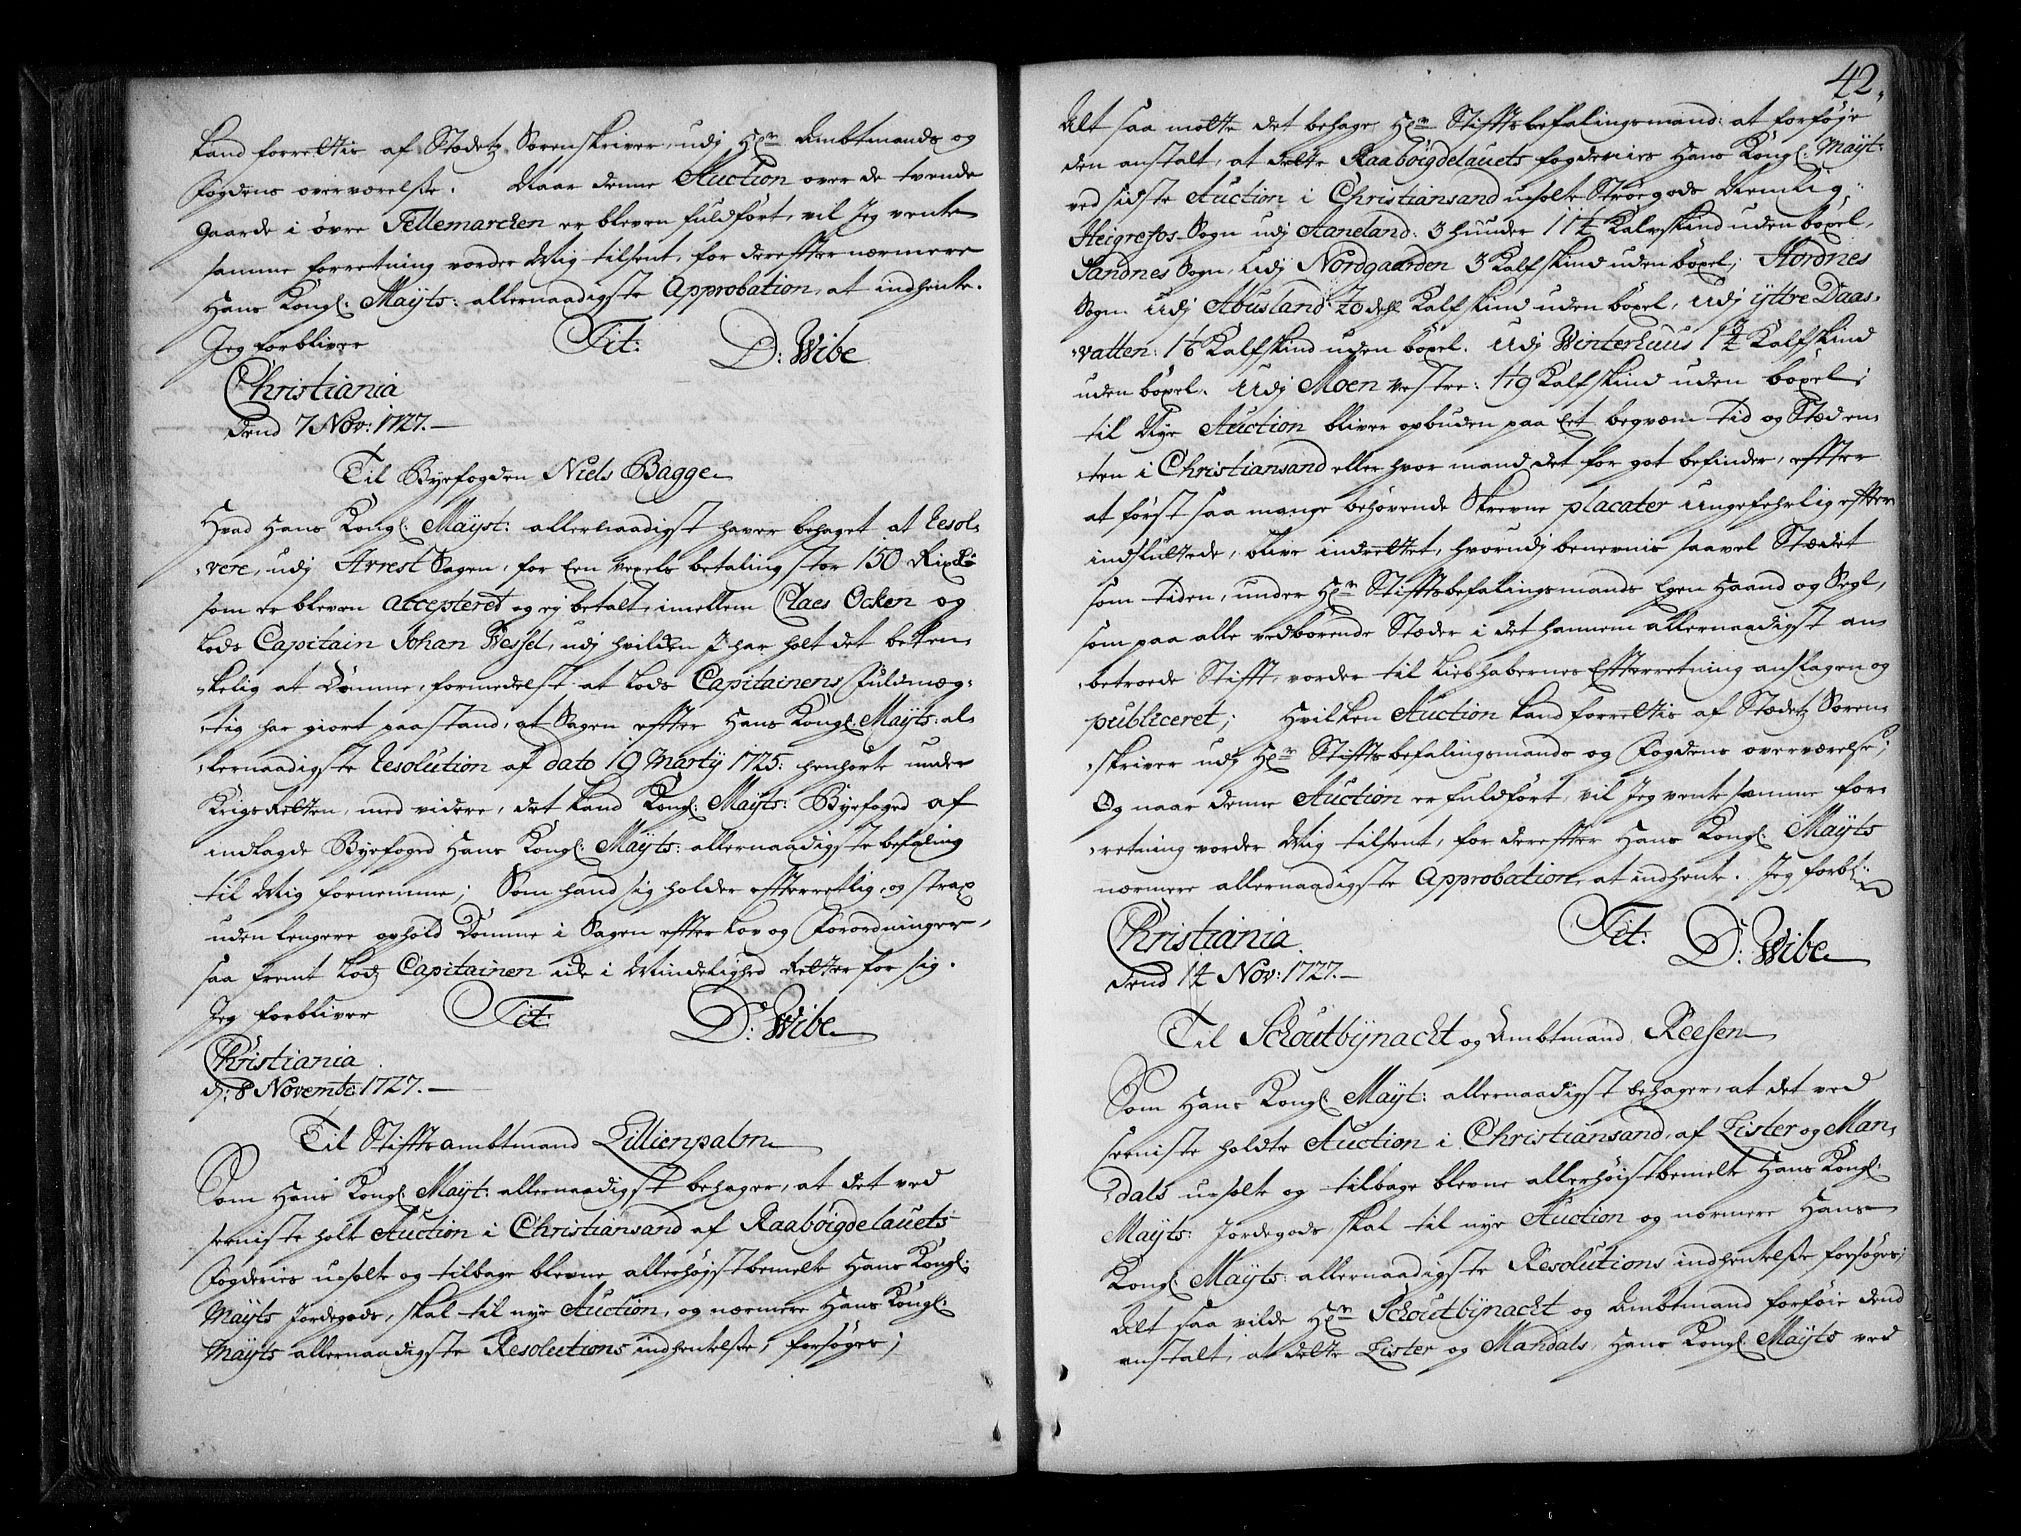 kand forrettis af Stedetz Sorenskriver, udj Hr. Ambtmands og
Fogdens overværelse. Naar denne Auction over de tvende
Gaarde i øvre Tellemarcken er bleven fuldført, vil Jeg vente
samme forretning vorder Mig tilsent, for derefter nærmere
Hans Kongl: Maÿts: allernaadigste Approbation at indhente.
Jeg forbliver Tit: D: Wibe
Christiania
dend 7 Nov: 1727.
Til Byefogden Niels Bagge
Hvad Hans Kongl: Maÿst: allernaadigst haver behaget at resol-
vere, udj Arrest Sagen, for een vexels betaling stor 150 Rixdr
som er bleven accepteret og ej betalt, imellem Claes Ocken og
Lods Capitain Johan Wessel, udj hvilken I har holt det betæn-
kelig at dømme, formedelst at Lods Capitainens Fuldmæg-
tig har giort paastand, at Sagen effter Hans Kongl: Maÿts: al-
lernaadigste resolution af dato 19 Martij 1725: henhørte under
KrigsRetten, med videre, det kand Kongl: Maÿts: Byefoged af
indlagde Byefoged Hans Kongl: Maÿts: allernaadigste befaling
til Mig fornemme; Som hand sig holder effterretlig, og strax
uden lengere ophold dømme i Sagen effter Lov og Forordninger,
saa fremt Lods Capitainen icke i Mindelighed retter for sig.
Jeg forbliver Tit: D: Wibe
Christiania
d: 8 Novembr: 1727.
Til Stifftsambtmand Lillienpalm
Som Hans Kongl: Maÿt: allernaadigst behager, at det ved
seeniste holt Auction i Christiansand af Raabøigdelauets
Fogderies usolte og tilbage blevne allerhøgstbemelte Hans Kongl:
Maÿts Jordegods, skal til nye Auction, og nærmere Hans Kongl:
Maÿts allernaadigste Resolutions indhentelse, forsøges;
42.
Alt saa motte det behage Hr. Stifftsbefalingsmand: at forføje
den anstalt, at dette Raabøigdelauets fogderies Hans Kongl: Maÿt:
ved sidste Auction i Christiansand usolte Strøegods Nemlig:
Heigrefos Sogn udj Haneland: 3 huuder 1½ Kalveskind uden bøxel,
Sandnes Sogn, Udj Nordgaarden 3 Kalfskind uden bøxel; Hordnes
Sogn. Udj Abusland deel Kalfskind uden bøxel, Udj yttre Daas-
vatten: Kalfskind uden bøxel. Udj Winterhuus Kalfskind
uden bøxel. Udj Moen vestre: Kalfskind uden bøxel;
til Nye Auction bliver opbuden paa Eet begvæm tid og Stæd en-
ten i Christiansand eller hvor mand det for got befinder, effter
at først saa mange behøvende Skrevne placater ungefehrlig effter
indsluttede, blive indrettet, hvorudj benevnis saavel Stædet
som tiden, under Hr. Stifftsbefalingsmands Egen Haand og Segl,
som paa alle vedborende Stæder i det hannem allernaadigst an-
betroede Stifft, vorder til Liebhabernes Effterretning anslagen og
publiceret; Hvilken Auction kand forrettis af Stedetz Soren-
skriver udj Hr. Stifftsbefalingsmands og Fogdens overværelse;
Og naar denne Auction er fuldført, vil Jeg vente samme for-
retning vorder Mig tilsent, for dereffter Hans Kongl: Maÿts
nærmere allernaadigste Approbation, at indhente. Jeg forbl:
Christiania Tit: D: Wibe
dend 14 Nov: 1727.
Til Schoutbÿnacht og Ambtmand Reesen
Som Hans Kongl: Maÿt: allernaadigst behager, at det ved
seeniste holdte Auction i Christiansand, af Lister og Man-
dals usolte og tilbage blevne allerhøistbemelte Hans Kongl:
Maÿts: Jordegods skal til nye Auction og nærmere Hans
Kongl: Maÿts: allernaadigste Resolutions indhentelse forsøges;
Alt saa vilde Hr. Schoutbÿnacht og Ambtmand forføie dend
anstalt, at dette Lister og Mandals Hans Kongl: Maÿts ved